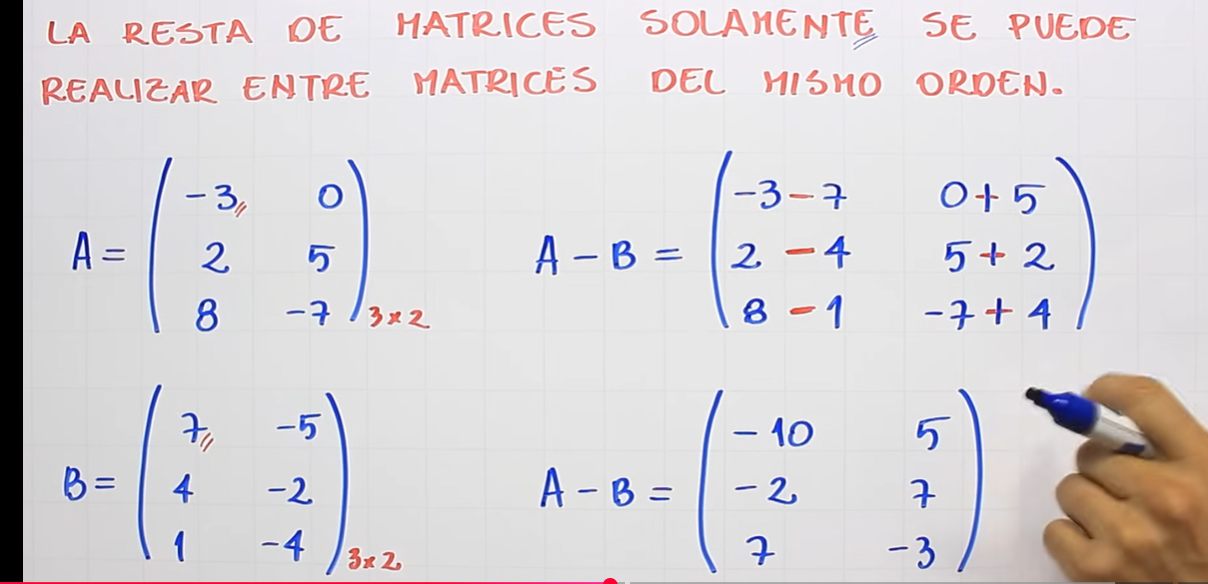 LA RESTA DE MATRICES SOLAMENTE SE PUEDE
REALIZAR ENTRE MATRICES DEL MISMO ORDEN.
A = ( -3 0
2 5
8 -7 ) 3x2
A - B = ( -3 - 7 0 + 5
2 - 4 5 + 2
8 - 1 -7 + 4 )
B = ( 7 -5
4 -2
1 -4 ) 3x2
A - B = ( -10 5
-2 7
7 -3 )